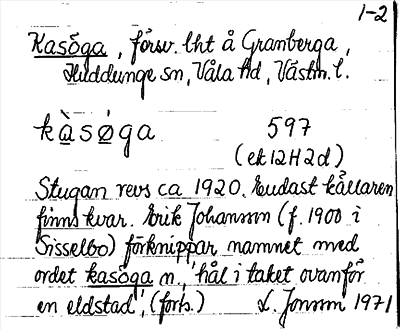 1-2
Kasöga, försv. lht å Granberga,
Huddunge sn, Våla hd, Västm. l.
kàsǿga 597
(ek 12H2d)
Stugan revs ca 1920. Endast källaren
finns kvar. Erik Johansson (f. 1900 i
Sisselbo) förknippar namnet med
ordet kasöga n., 'hål i taket ovanför
en eldstad', (forts.) L. Jonsson 1971